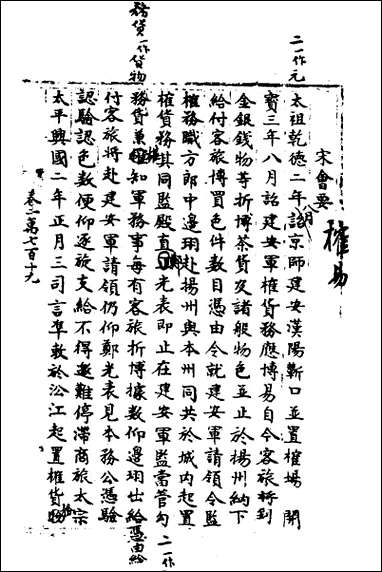 宋會要
榷易
太祖乾德二年八月詔京師建安漢陽蘄口並置榷場 開
二一作元
寶三年八月詔建安軍榷貨務應博易自今客旅將到
金銀錢物等折博茶貨及諸般物色並止於揚州納下
給付客旅博買色件數目憑由令就建安軍請領令監
榷務職方郎中邊珝赴揚州與本州同共於城内起置
榷貨務其同監殿直鄭光表即止在建安軍監當管勾
二一作
務貨兼權知軍務事每有客旅折博據數仰邊珝出給憑由給
務貨一作貨物
付客旅將赴建安軍請領仍仰鄭光表見本務公憑驗
認驗認色數便仰逐旋支給不得邀難停滯商旅太宗
太平興國二年正月三司言准敕於沿江起置榷貨務
卷二萬七百十九